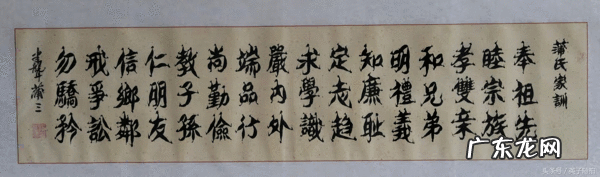 蒲氏家訓
奉祖先
睦宗族
孝雙亲
和兄弟
明禮義
知廉耻
定志趨
求學識
嚴內外
端品行
尚勤儉
教子孫
仁朋友
信鄉鄰
戒爭訟
勿驕矜
广东龙网